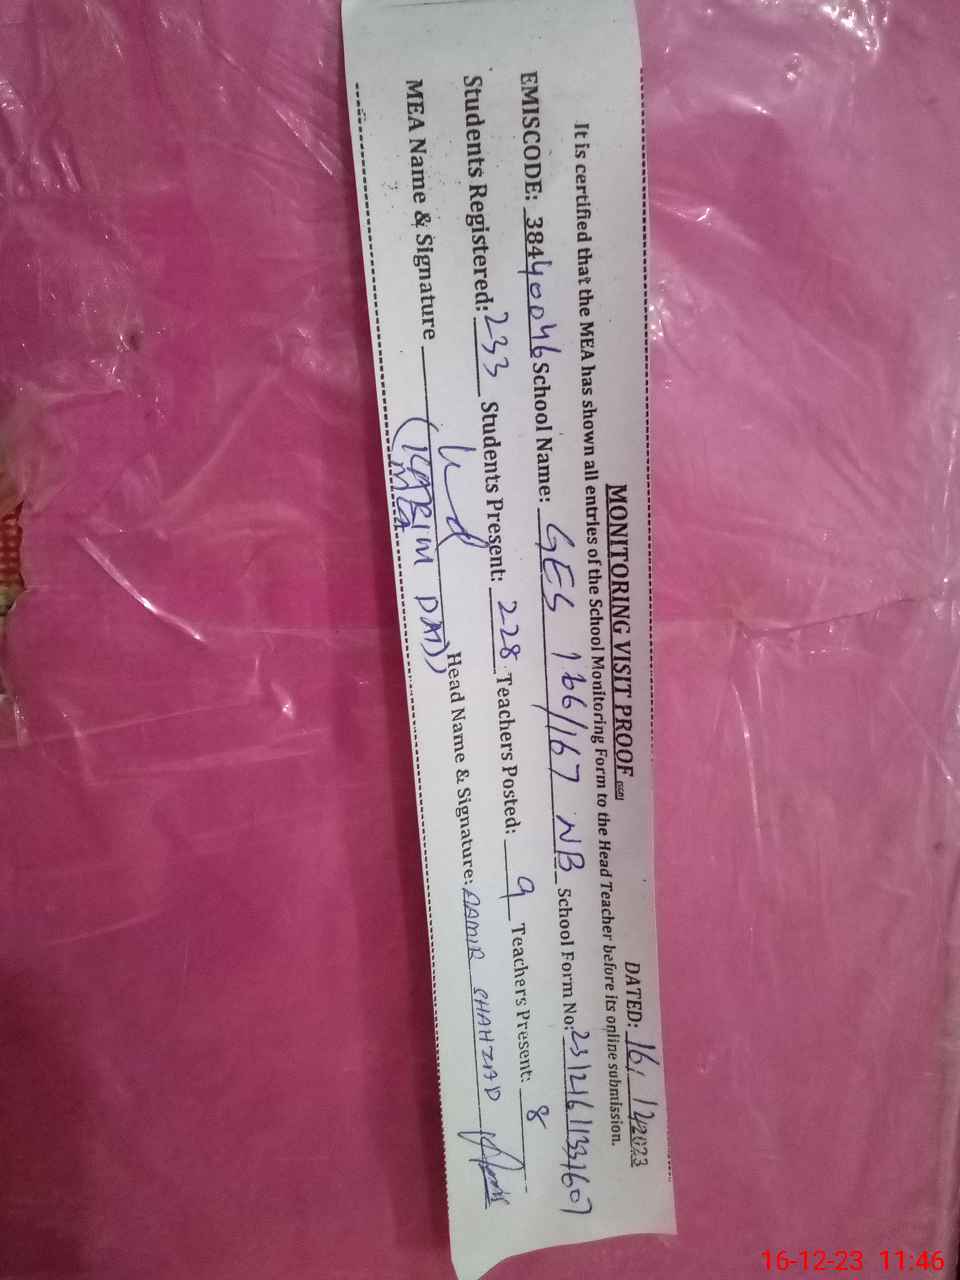 MONITORING VISIT PROOF DATED: 16/12/2023
It is certified that the MEA has shown all entries of the School Monitoring Form to the Head Teacher before its online submission.
EMISCODE: 38440046 School Name: GES 166/167 NB School Form No: 23121611331607
Students Registered: 233 Students Present: 228 Teachers Posted: 9 Teachers Present: 8
MEA Name & Signature (KARIM DAD) Head Name & Signature: AAMIR SHAHZAD
MEA
16-12-23 11:46